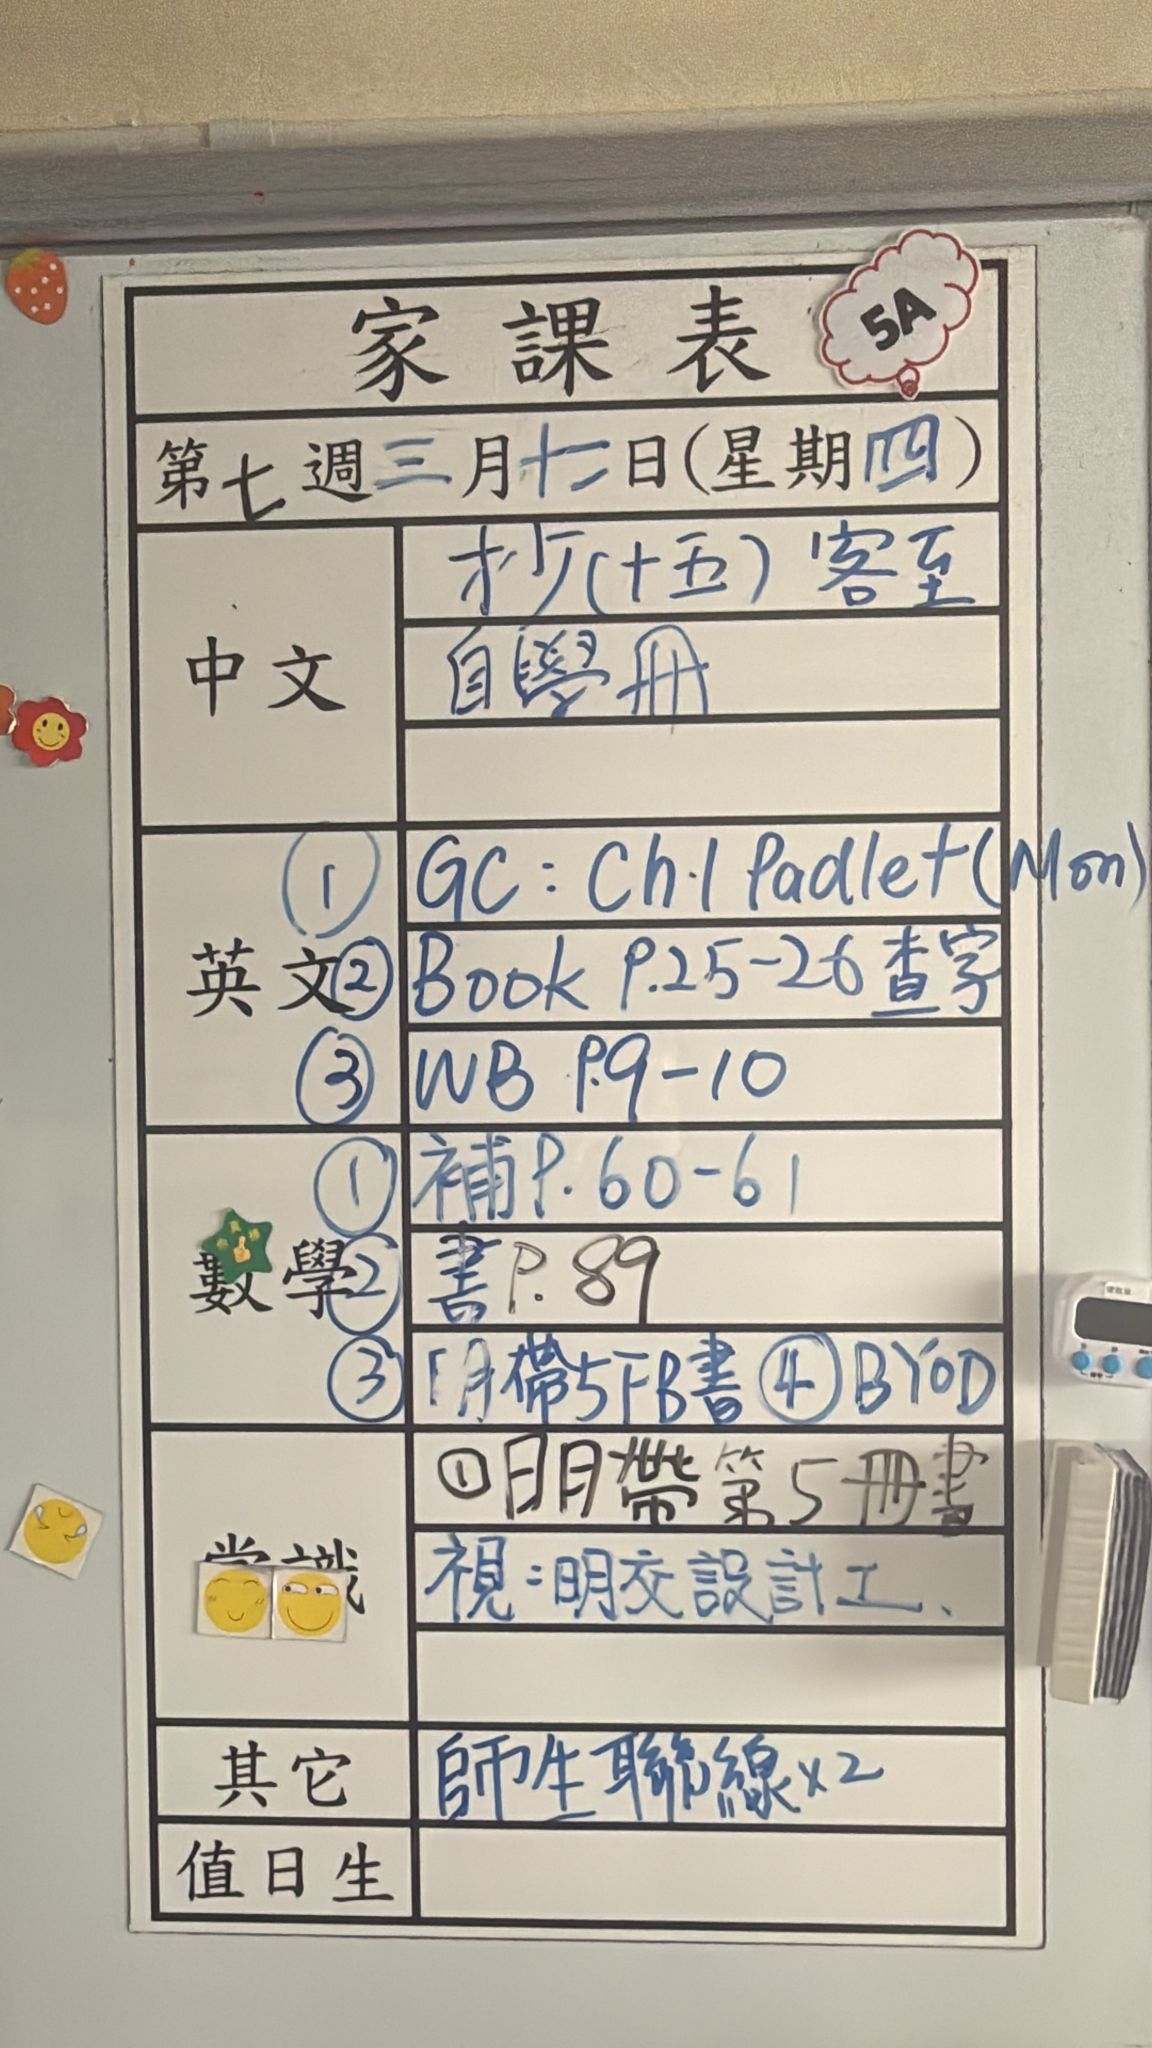 家課表
5A
第七週三月十二日(星期四)
中文
抄(十五)客至
自學冊
英文
① GC: Ch.1 Padlet (Mon)
② Book P.25-26 查字
③ WB P.9-10
數學
① 補P.60-61
② 書P.89
③ 明帶5FB書 ④ BYOD
常識
①明帶第5冊書
視:明交設計工、
其它
師生聯線x2
值日生